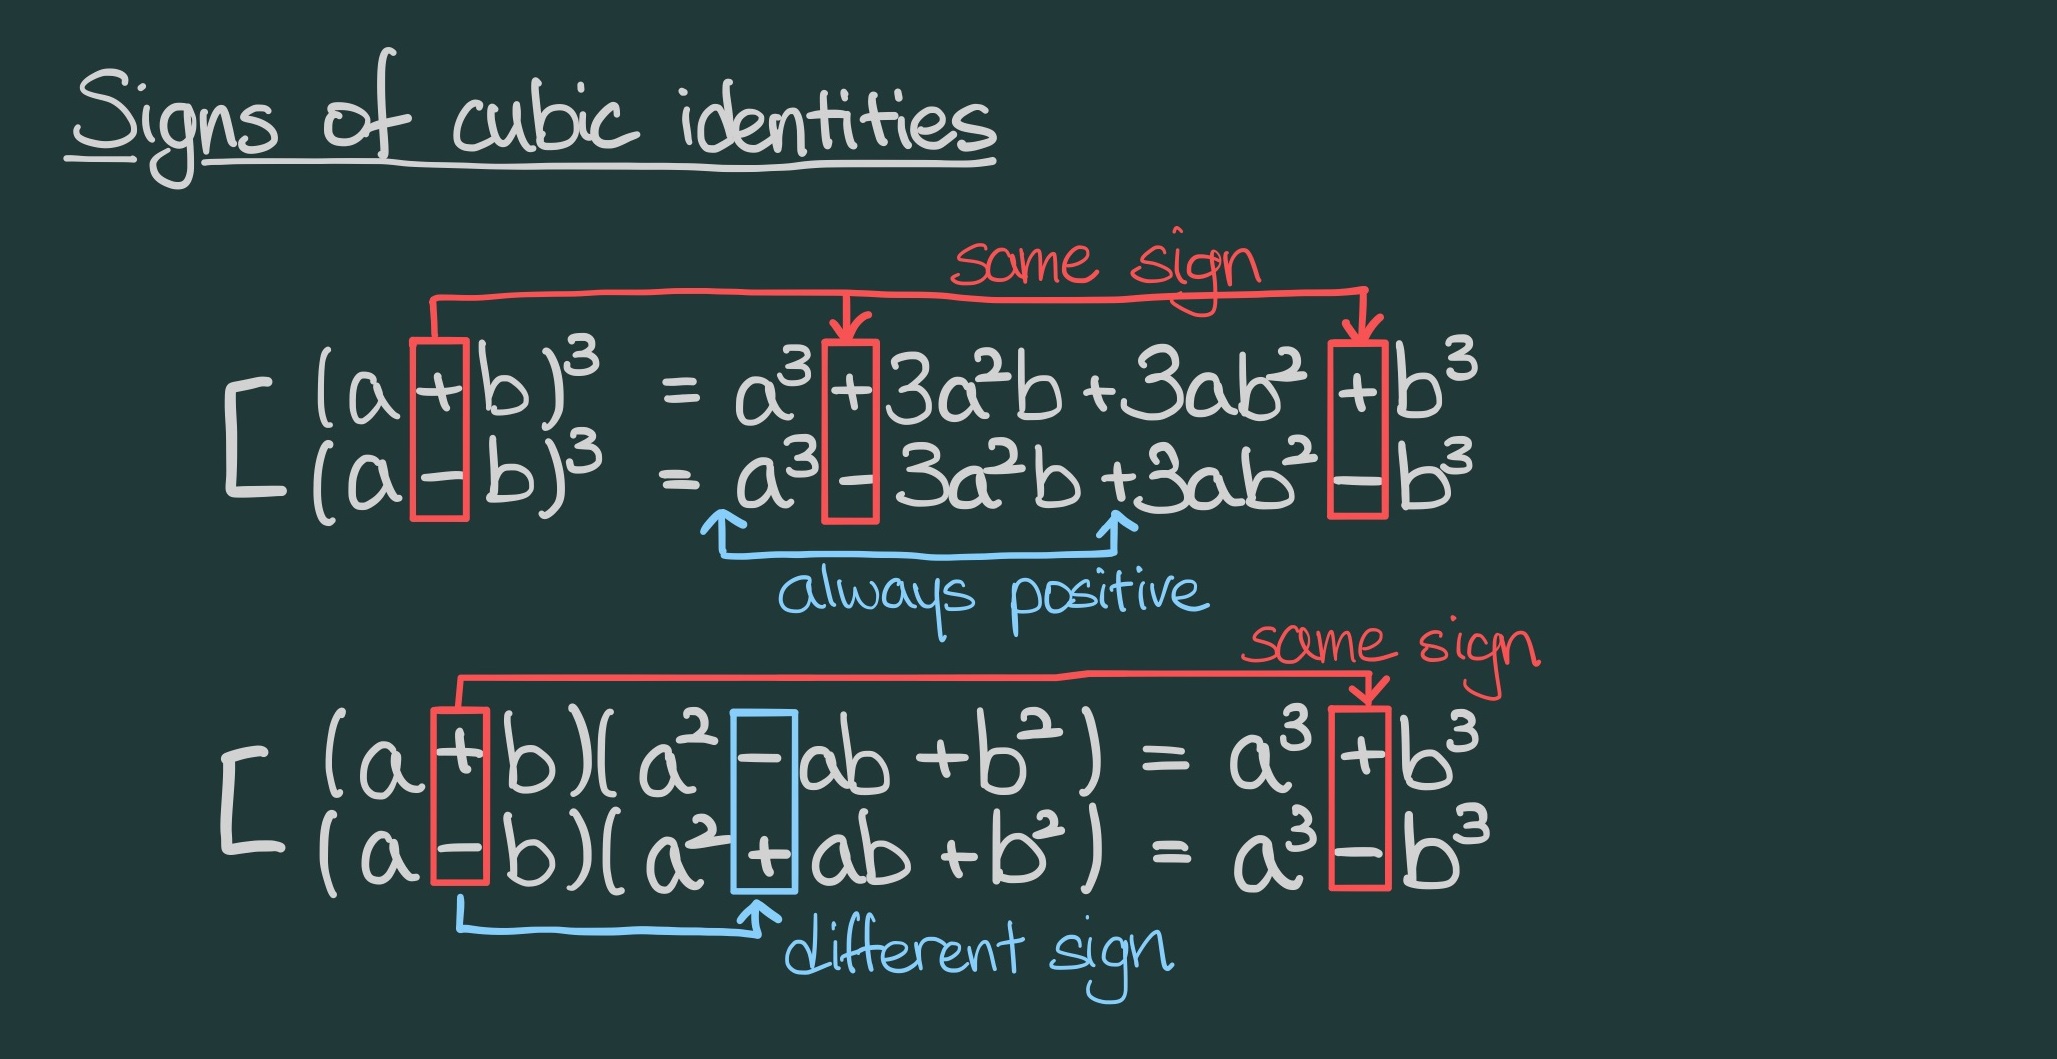 Signs of cubic identities
same sign
(a+b)³ = a³+3a²b+3ab²+b³
(a-b)³ = a³-3a²b+3ab²-b³
always positive
same sign
(a+b)(a²-ab+b²) = a³+b³
(a-b)(a²+ab+b²) = a³-b³
different sign